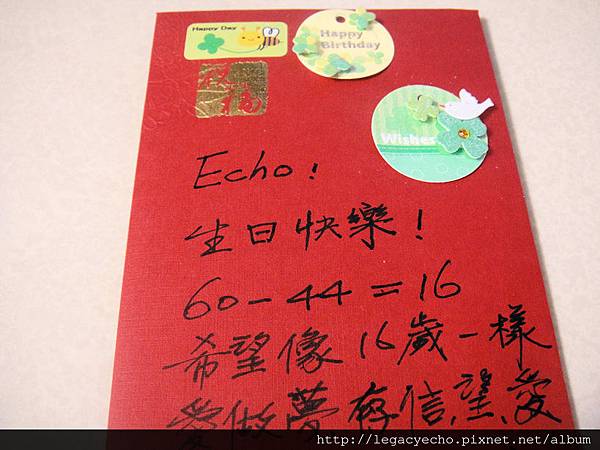 Happy Day
Happy
Birthday
Wishes
Echo!
生日快樂!
60-44=16
希望像16歲一樣
愛做夢存信.望.愛
http://legacyecho.pixnet.net/album